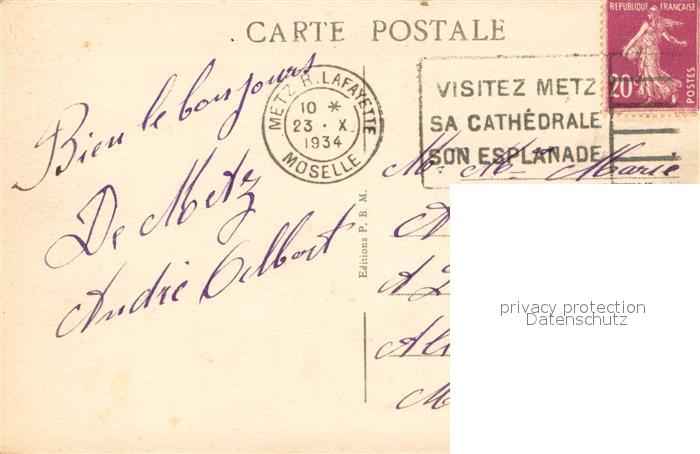 CARTE POSTALE
REPUBLIQUE FRANÇAISE
20c
POSTES
METZ R. LAFAYETTE
10 *
23 · X
1934
MOSELLE
VISITEZ METZ
SA CATHÉDRALE
SON ESPLANADE
Bien le bonjours
De Metz
André Albert
Editions P. B. M.
Mr. Mme Marie
privacy protection
Datenschutz